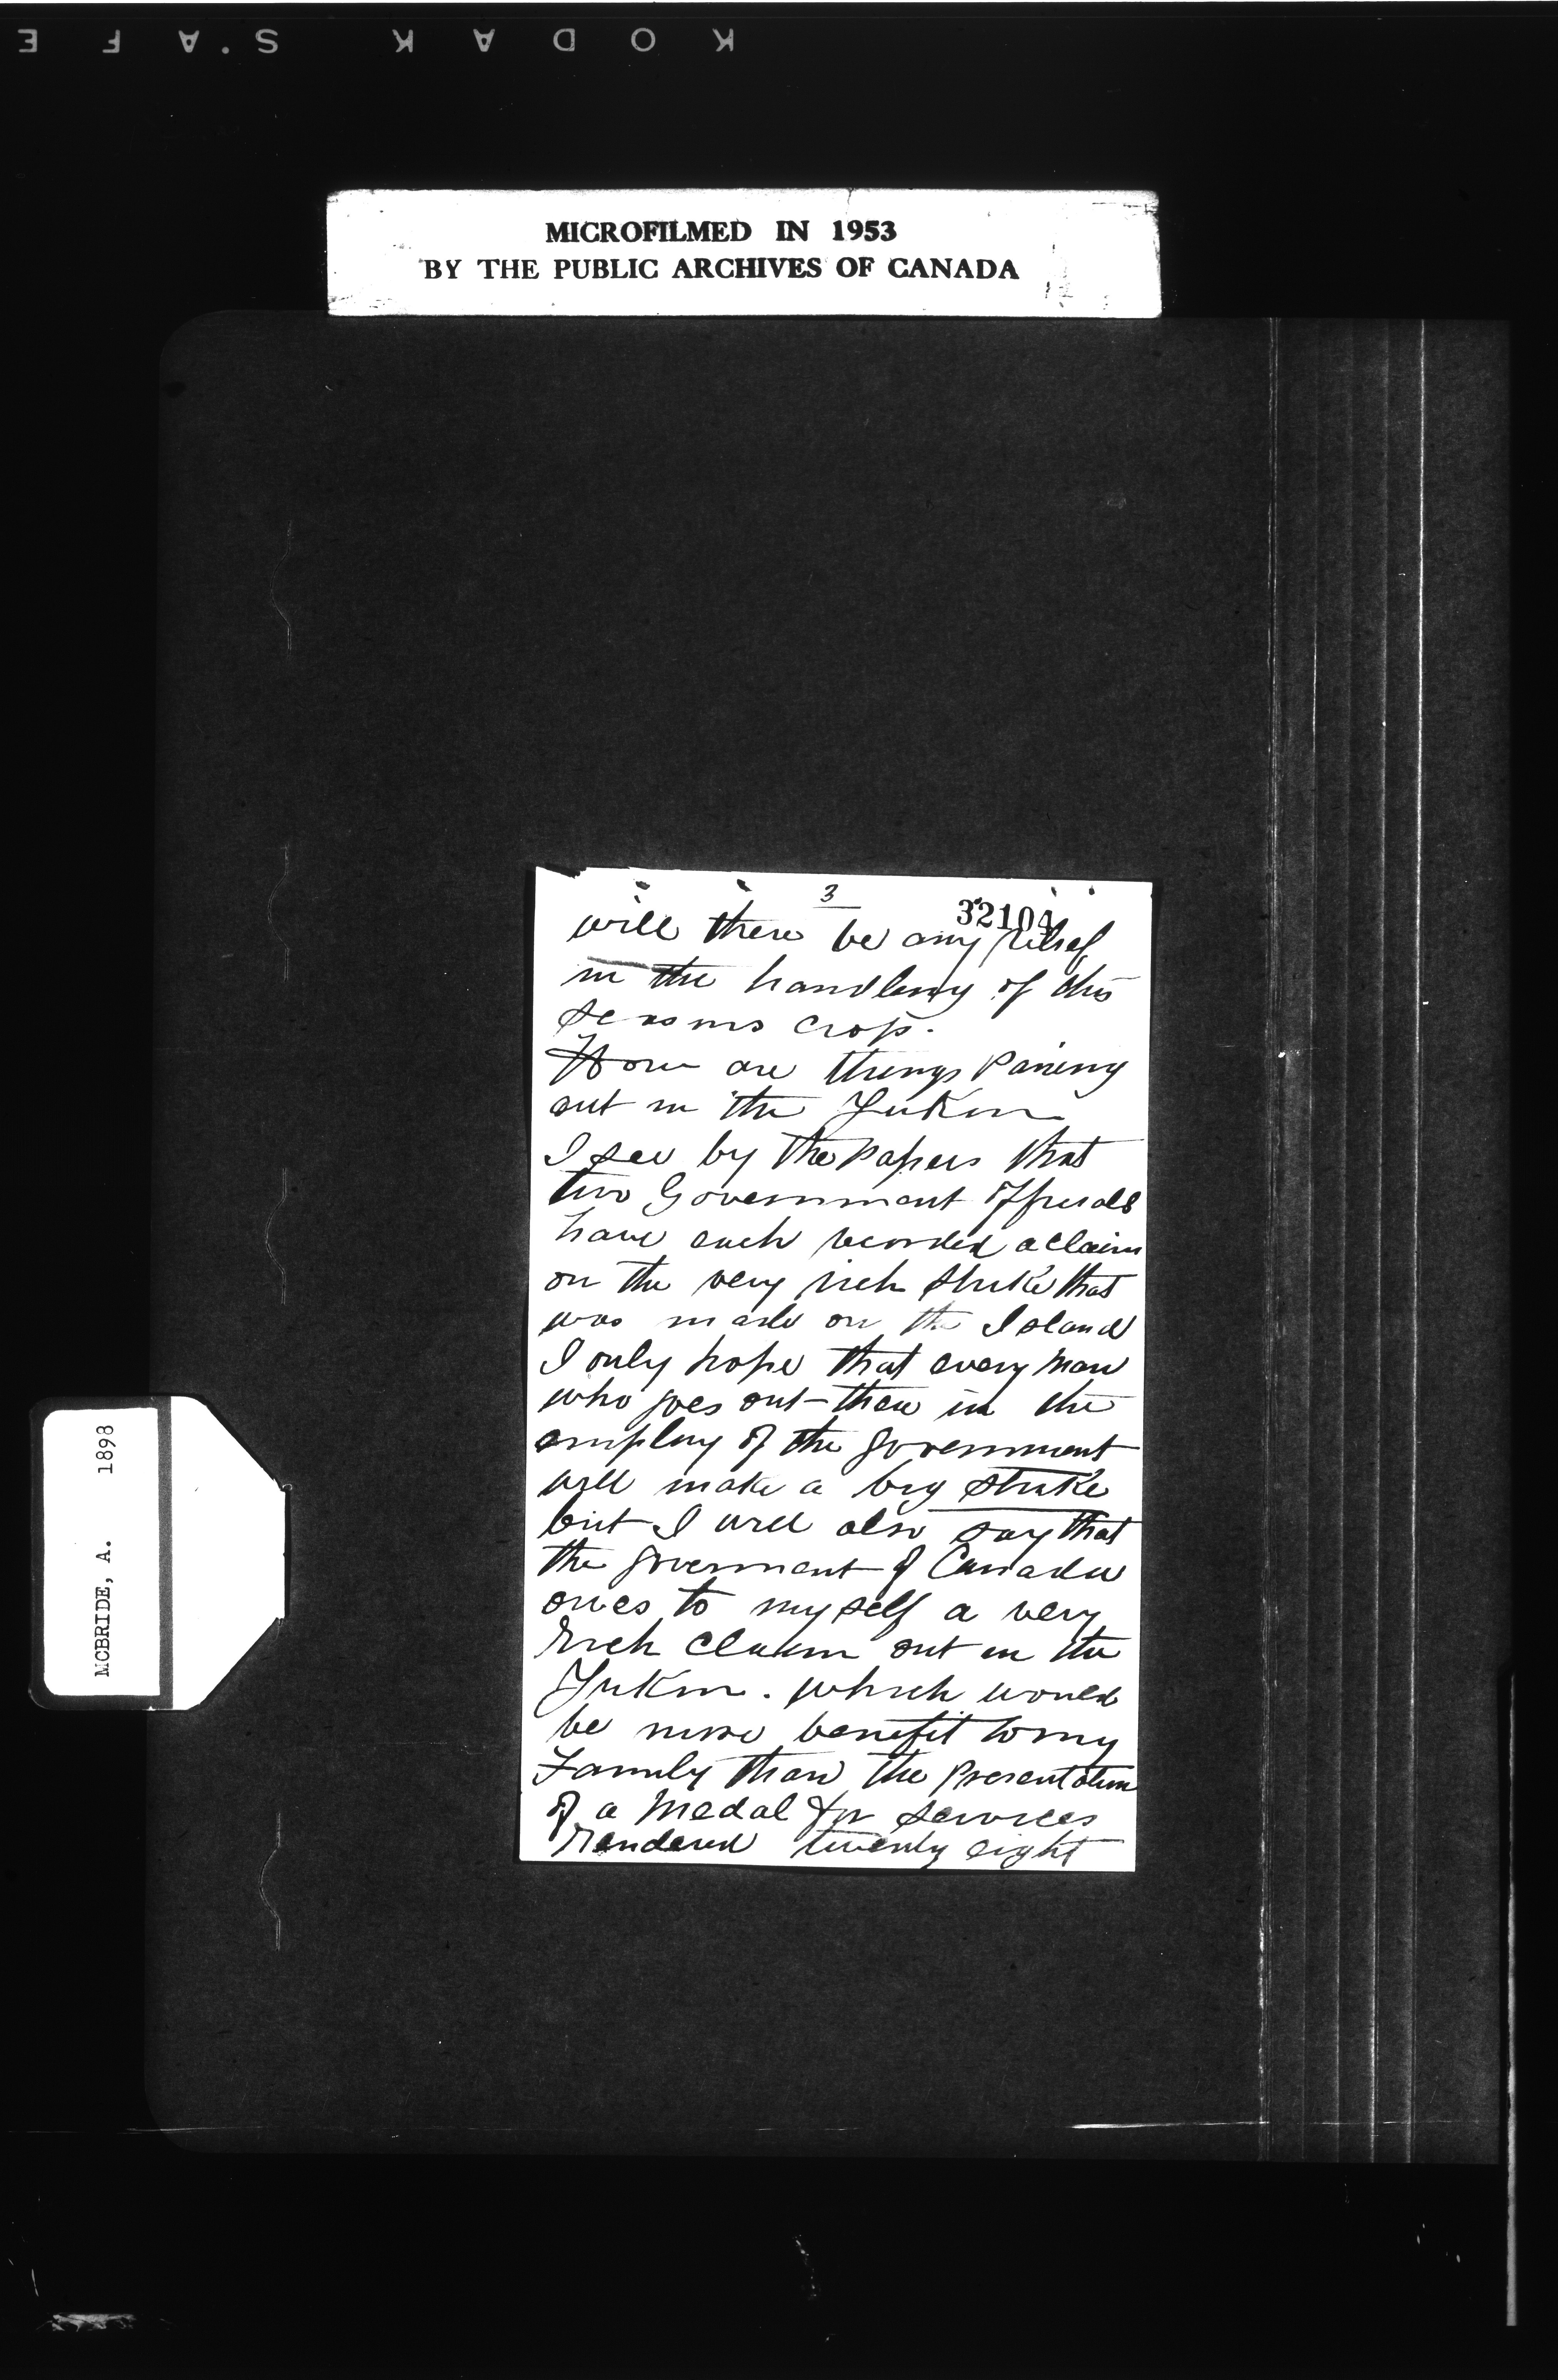 KODAK S'AFE
MICROFILMED IN 1953
BY THE PUBLIC ARCHIVES OF CANADA
MCBRIDE, A. 1898
3
32104
will there be any relief
in the handling of this
seasons crop.
How are things Paning
out in the Yukon
I see by the Papers that
two Government Officials
have each recorded a claim
on the very rich strike that
was made on the Island
I only hope that every man
who goes out there in the
employ of the government
will make a big strike
but I will also say that
the goverment of Canada
owes to myself a very
Rich Claim out in the
Yukon. which would
be more benefit to my
Family than the Presentation
of a Medal for services
Rendered twenty eight